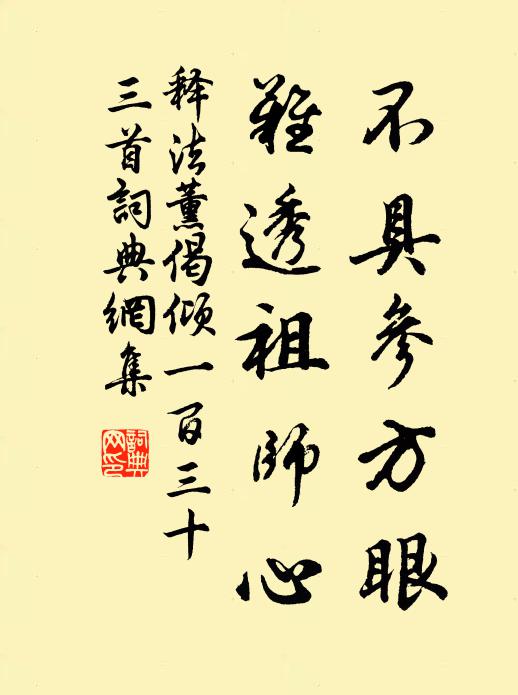 不具參方眼
難透祖師心
释法薰偈傾一百三十
三首詞典網集
詞典
网印